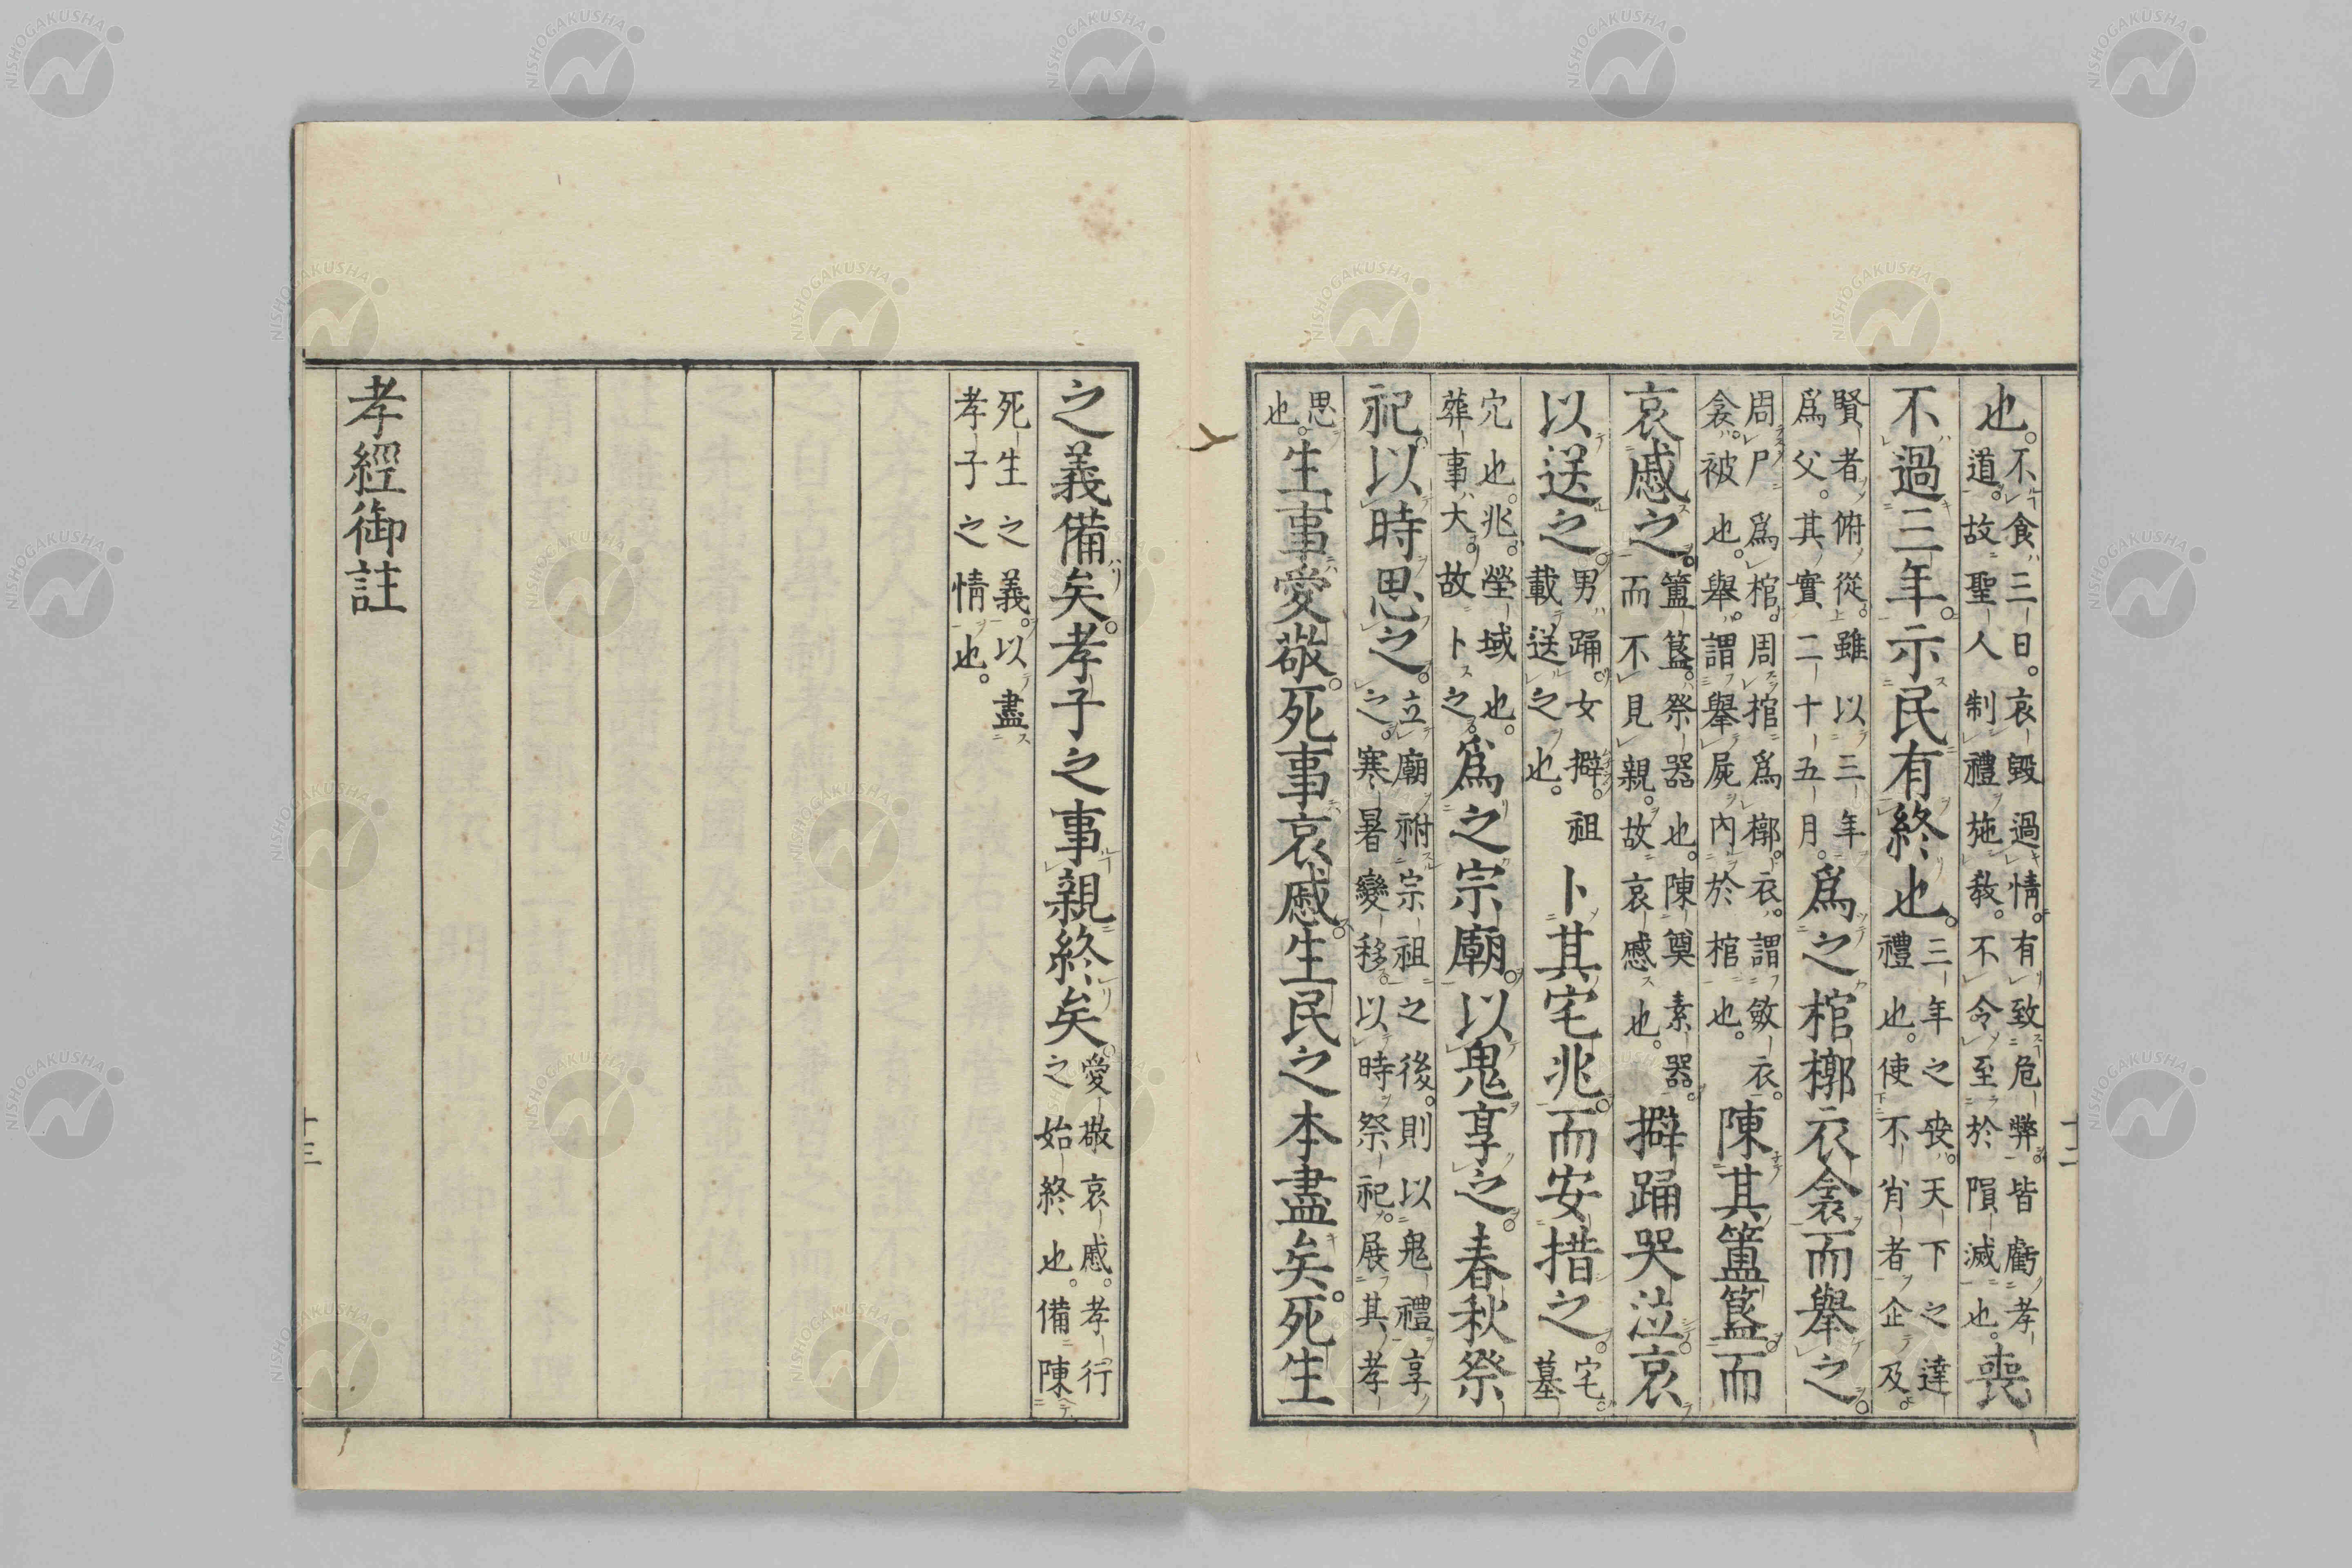 也。不食三日。哀毀過情。有致危弊。皆虧孝道。故聖人制禮施敎。不令至於隕滅也。喪
不過三年。示民有終也。三年之喪。天下之達禮也。使不肖者企及。
賢者俯從。雖以三年爲父。其實二十五月。爲之棺槨衣衾而舉之。
周尸爲棺。周棺爲槨。衣。謂斂衣。衾。被也。舉。謂舉屍內於棺也。陳其簠簋。而
哀慼之。簠簋。祭器也。陳奠素器。而不見親。故哀慼也。擗踊哭泣。哀
以送之。男踊。女擗。祖載送之也。卜其宅兆。而安措之。宅。墓
穴也。兆。塋域也。葬事大。故卜之。爲之宗廟。以鬼享之。春秋祭
祀。以時思之。立廟祔宗祖之後。則以鬼禮享之。寒暑變移。以時祭祀。展其孝
思也。生事愛敬。死事哀慼。生民之本盡矣。死生
之義備矣。孝子之事親終矣。愛敬哀慼。孝行之始終也。備陳
死生之義。以盡孝子之情也。
孝經御註
十三